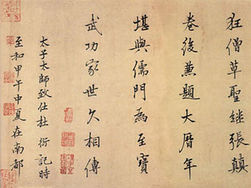 狂僧草聖繼張顛
卷後兼題大曆年
堪與儒門為至寶
武功家世久相傳
太子太師致仕杜衍記時
至和甲午中夏在南都